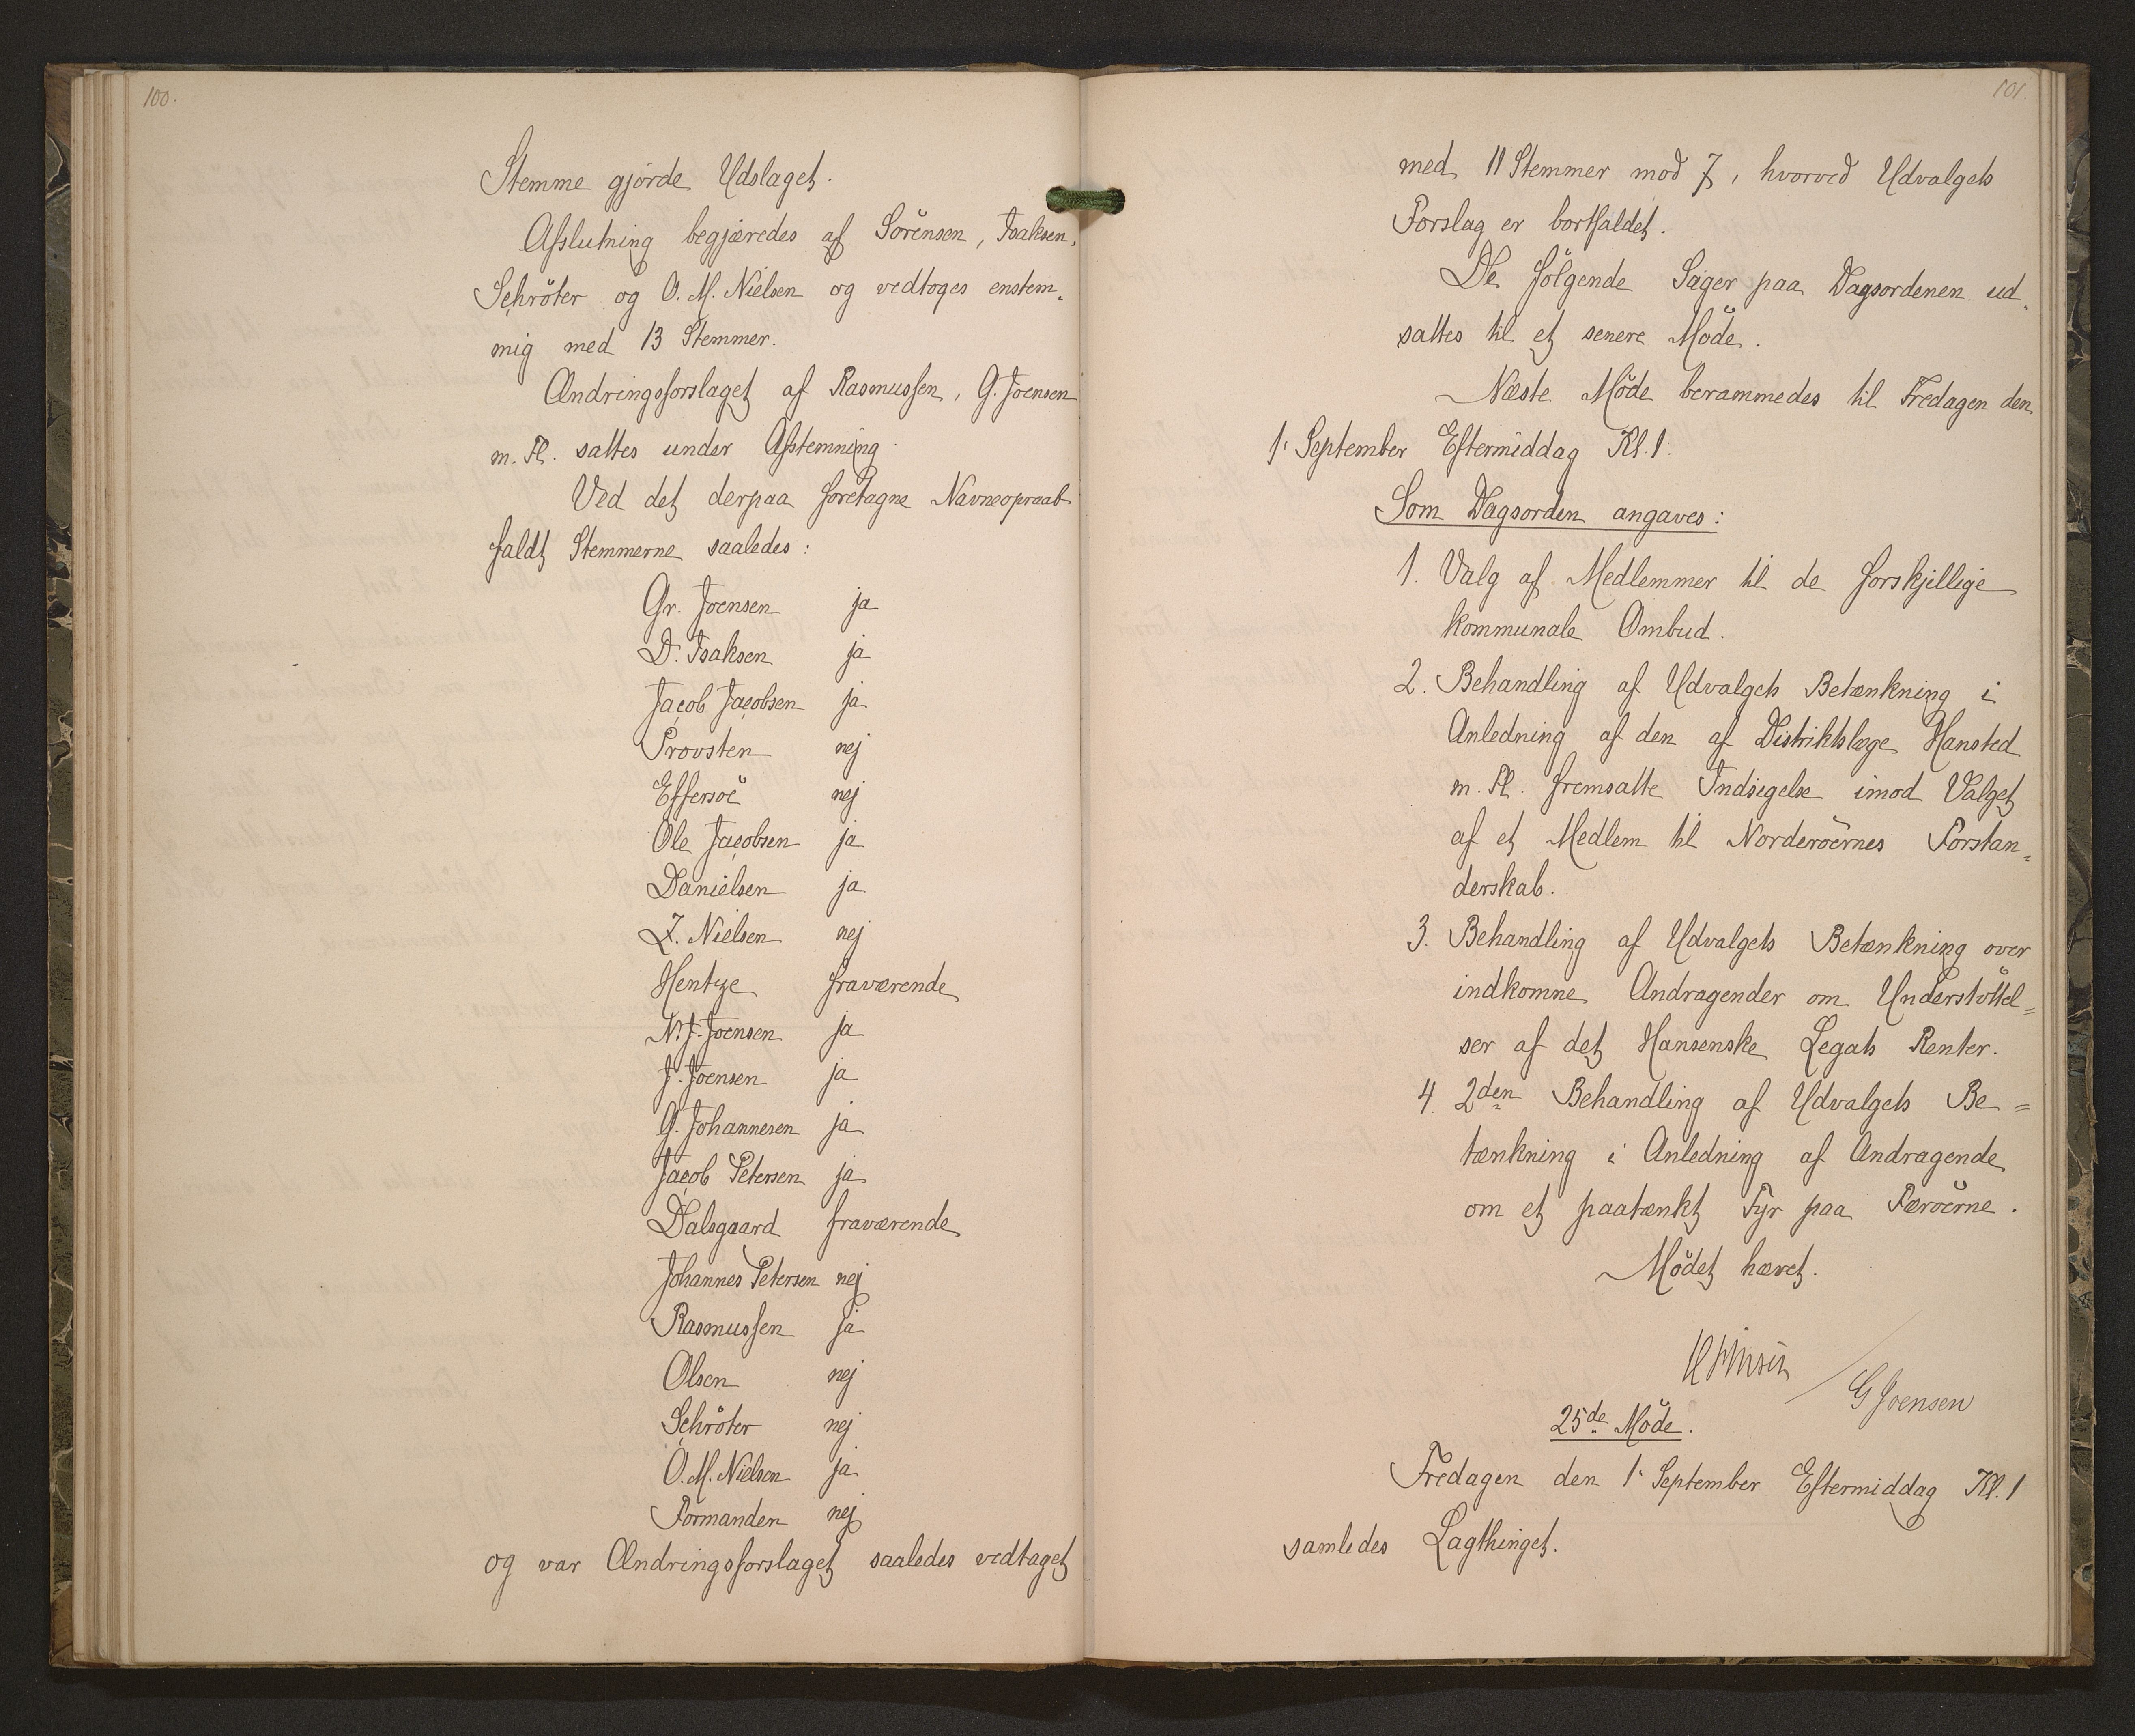 100.
Stemme gjörde Udslaget.
Afslutning begjæredes af Sörensen, Isaksen,
Schröter og O. M. Nielsen og vedtoges enstem-
mig med 13 Stemmer.
Ændringsforslaget af Rasmussen, G. Joensen
m. Fl. sattes under Afstemning.
Ved det derpaa foretagne Navneopraab
faldt Stemmerne saaledes:
Gr. Joensen ja
D. Isaksen ja
Jacob Jacobsen ja
Provsten nej
Effersöe nej
Ole Jacobsen ja
Danielsen ja
Z. Nielsen nej
Hentze fraværende
N. J. Joensen ja
J. Joensen ja
G. Johannesen ja
Jacob Petersen ja
Dalsgaard fraværende
Johannes Petersen nej
Rasmussen ja
Olsen nej
Schröter nej
O. M. Nielsen ja
Formanden nej
og var Ændringsforslaget saaledes vedtaget
101.
med 11 Stemmer mod 7, hvorved Udvalgets
Forslag er bortfaldet.
De fölgende Sager paa Dagsordenen ud-
sattes til et senere Möde.
Næste Möde berammedes til Fredagen den
1. September Eftermiddag Kl. 1.
Som Dagsorden angaves:
1. Valg af Medlemmer til de forskjellige
kommunale Ombud.
2. Behandling af Udvalgets Betænkning i
Anledning af den af Distriktslæge Hansted
m. Fl. fremsatte Indsigelse imod Valget
af et Medlem til Norderöernes Forstan-
derskab.
3. Behandling af Udvalgets Betænkning over
indkomne Andragender om Understöttel=
ser af det Hansenske Legats Renter.
4. 2den Behandling af Udvalgets Be=
tænkning i Anledning af Andragende
om et paatænkt Fyr paa Færöerne.
Mödet hævet.
G Joensen
25de Möde.
Fredagen den 1. September Eftermiddag Kl. 1
samledes Lagthinget.